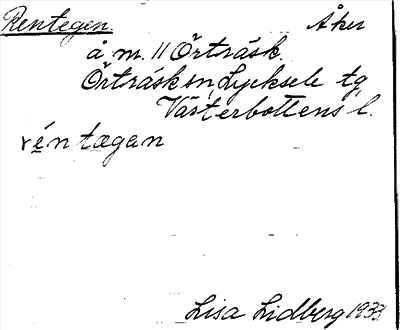 Rentegen. Åker
å m. 11 Örträsk.
Örträsk sn, Lycksele tg
Västerbottens l.
réntægan
Lisa Lidberg 1933